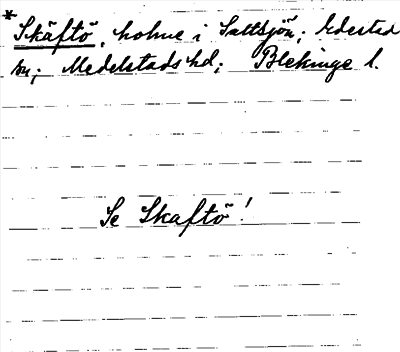 * Skäftö, holme i Saltsjön; Edestad
sn; Medelstads hd; Blekinge l.
Se Skaftö!